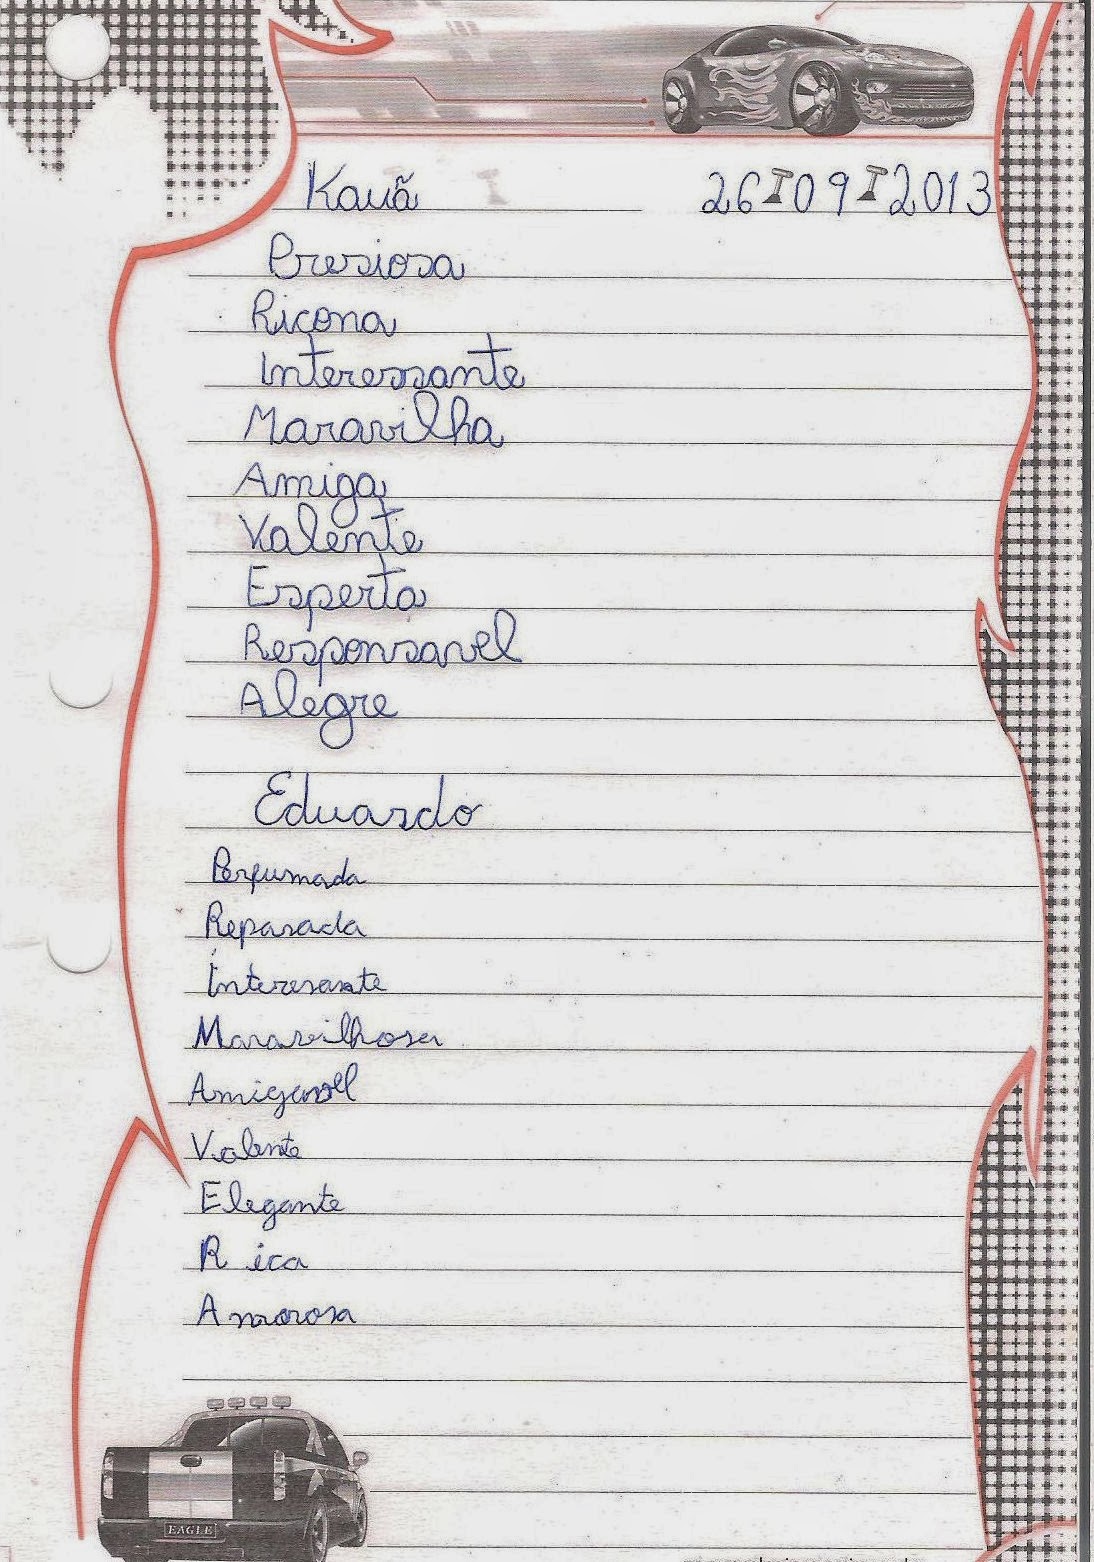 Kauã 26/09/2013
Presiosa
Ricona
Interessante
Maravilha
Amiga
Valente
Esperta
Responsavel
Alegre
Eduardo
Perfumada
Reparada
Interesante
Maravilhosa
Amigavel
Valente
Elegante
Rica
Amorosa
EAGLE